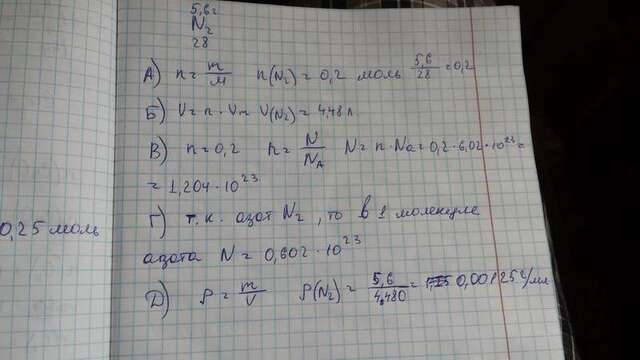 5,6г
N₂
28
А) n = m/M n(N₂) = 0,2 моль 5,6/28 = 0,2
Б) V = n · Vm V(N₂) = 4,48 л
В) n = 0,2 n = N/NA N = n · Na = 0,2 · 6,02 · 10²³ =
= 1,204 · 10²³
Г) т.к. азот N₂, то в 1 молекуле
азота N = 0,602 · 10²³
0,25 моль
Д) ρ = m/V ρ(N₂) = 5,6/4,480 = 0,00125 г/мл